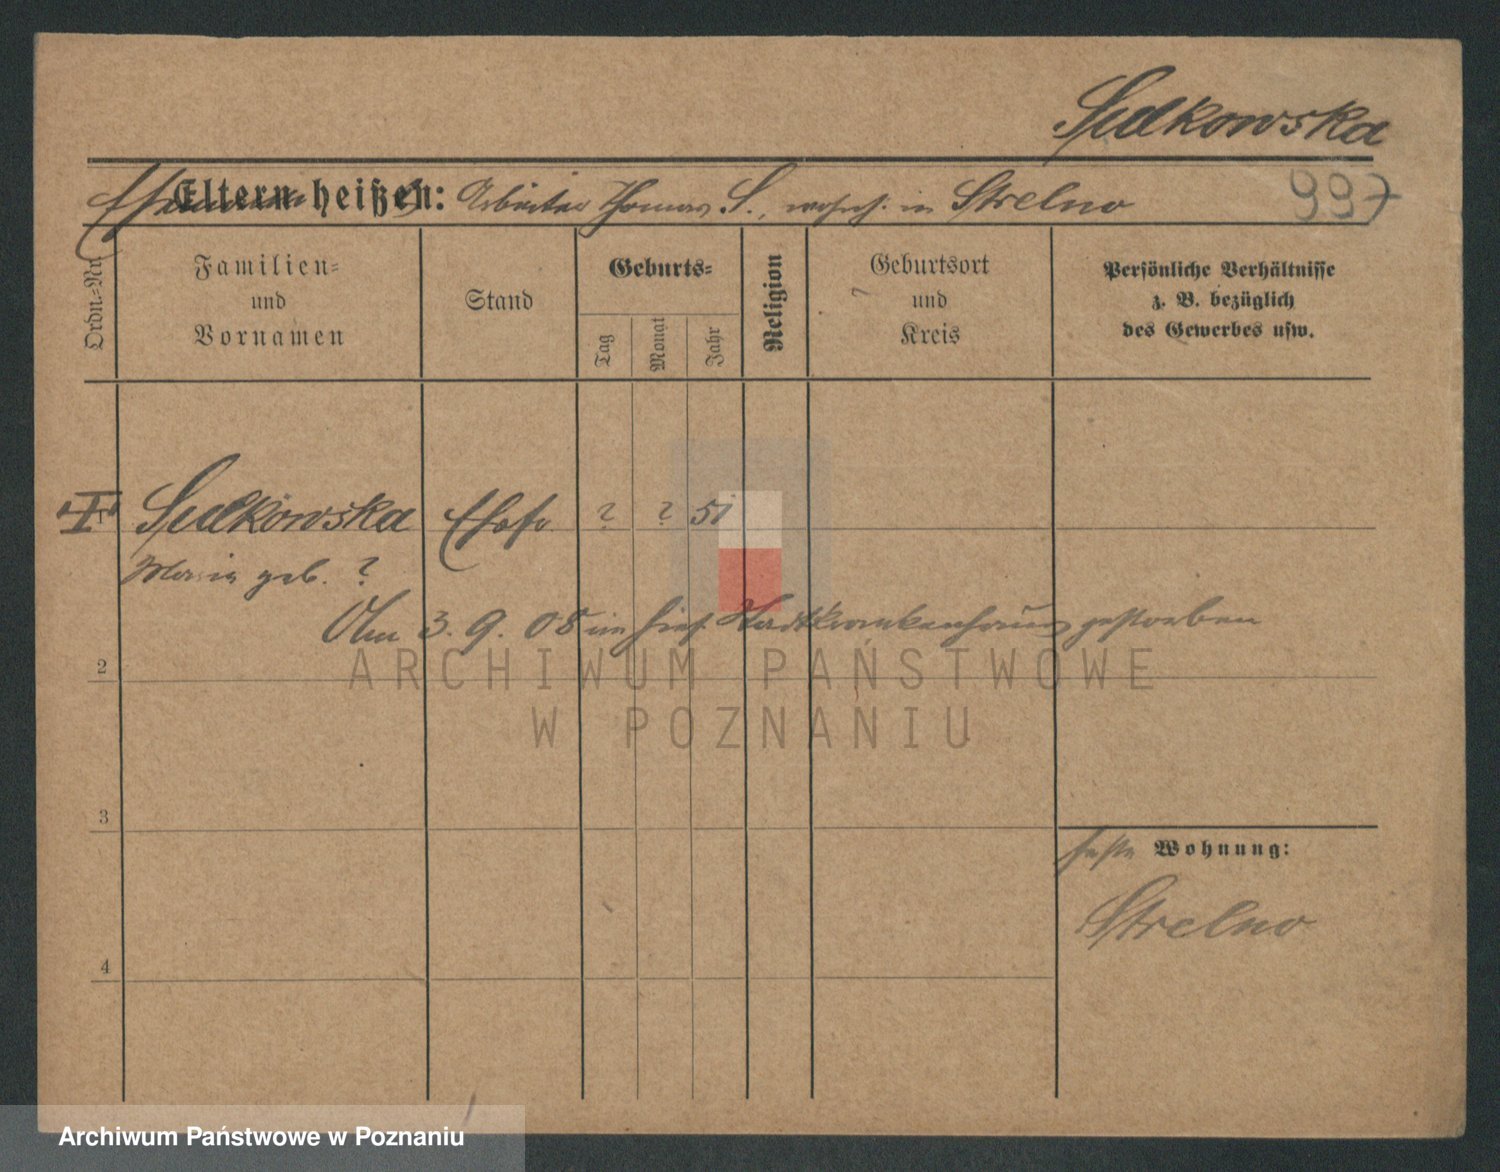 Sulkowska
Eltern heißen: Arbeiter Thomas S., wohnh. in Strelno
997
Ordn.=Nr.
Familien=
und
Vornamen
Stand
Geburts=
Tag
Monat
Jahr
Religion
Geburtsort
und
Kreis
Persönliche Verhältnisse
z. B. bezüglich
des Gewerbes usw.
1 Sulkowska Ehefr. ? ? 51
Maria geb. ?
Am 3. 9. 08 im hies. Stadtkrankenhaus gestorben
2
3
Wohnung:
Strelno
4
ARCHIWUM PAŃSTWOWE
W POZNANIU
Archiwum Państwowe w Poznaniu